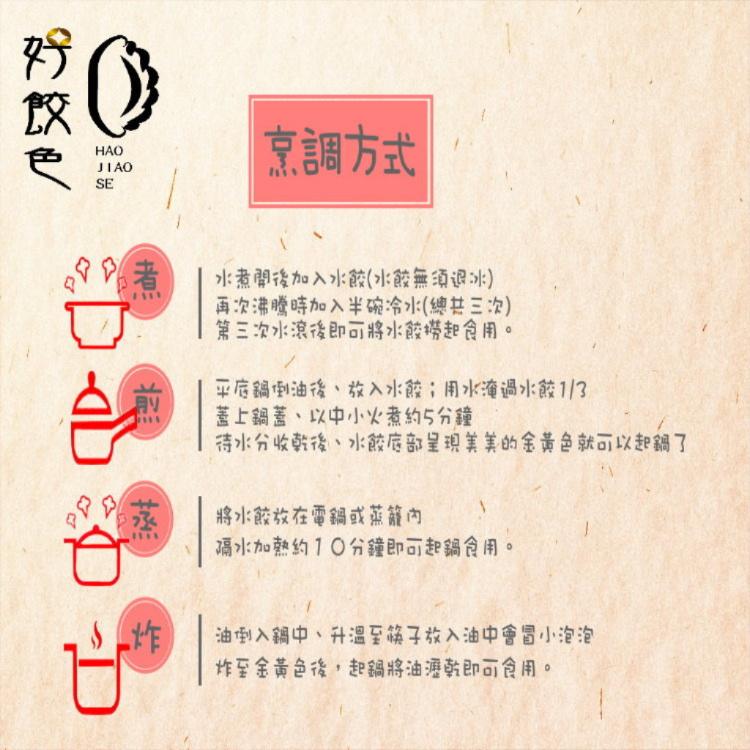 好餃色
HAO
JIAO
SE
烹調方式
煮
水煮開後加入水餃(水餃無須退冰)
再次沸騰時加入半碗冷水(總共三次)
第三次水滾後即可將水餃撈起食用。
煎
平底鍋倒油後、放入水餃；用水淹過水餃1/3
蓋上鍋蓋、以中小火煮約5分鐘
待水分收乾後、水餃底部呈現美美的金黃色就可以起鍋了
蒸
將水餃放在電鍋或蒸籠內
隔水加熱約10分鐘即可起鍋食用。
炸
油倒入鍋中、升溫至筷子放入油中會冒小泡泡
炸至金黃色後，起鍋將油瀝乾即可食用。